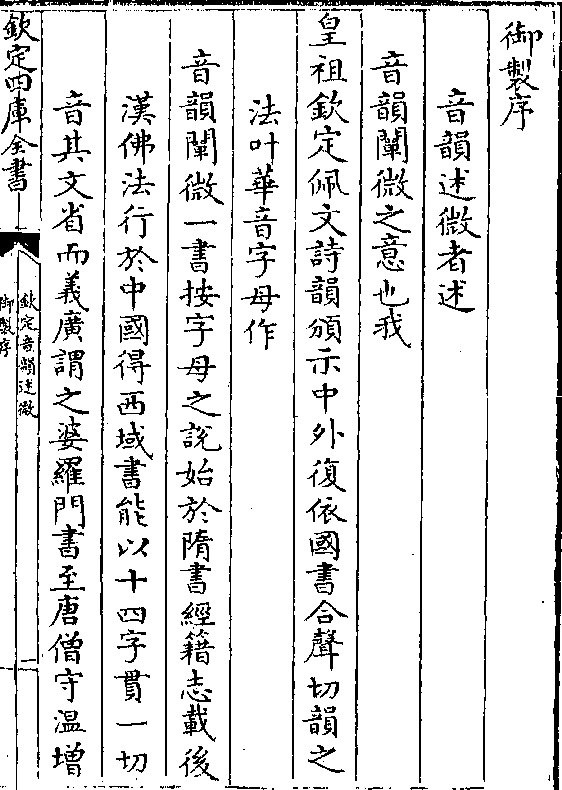 御製序
音韻述微者述
音韻闡微之意也我
皇祖欽定佩文詩韻頒示中外復依國書合聲切韻之
法叶華音字母作
音韻闡微一書按字母之說始於隋書經籍志載後
漢佛法行於中國得西域書能以十四字貫一切
音其文省而義廣謂之婆羅門書至唐僧守温增
欽定四庫全書
欽定音韻述微
御製序
二